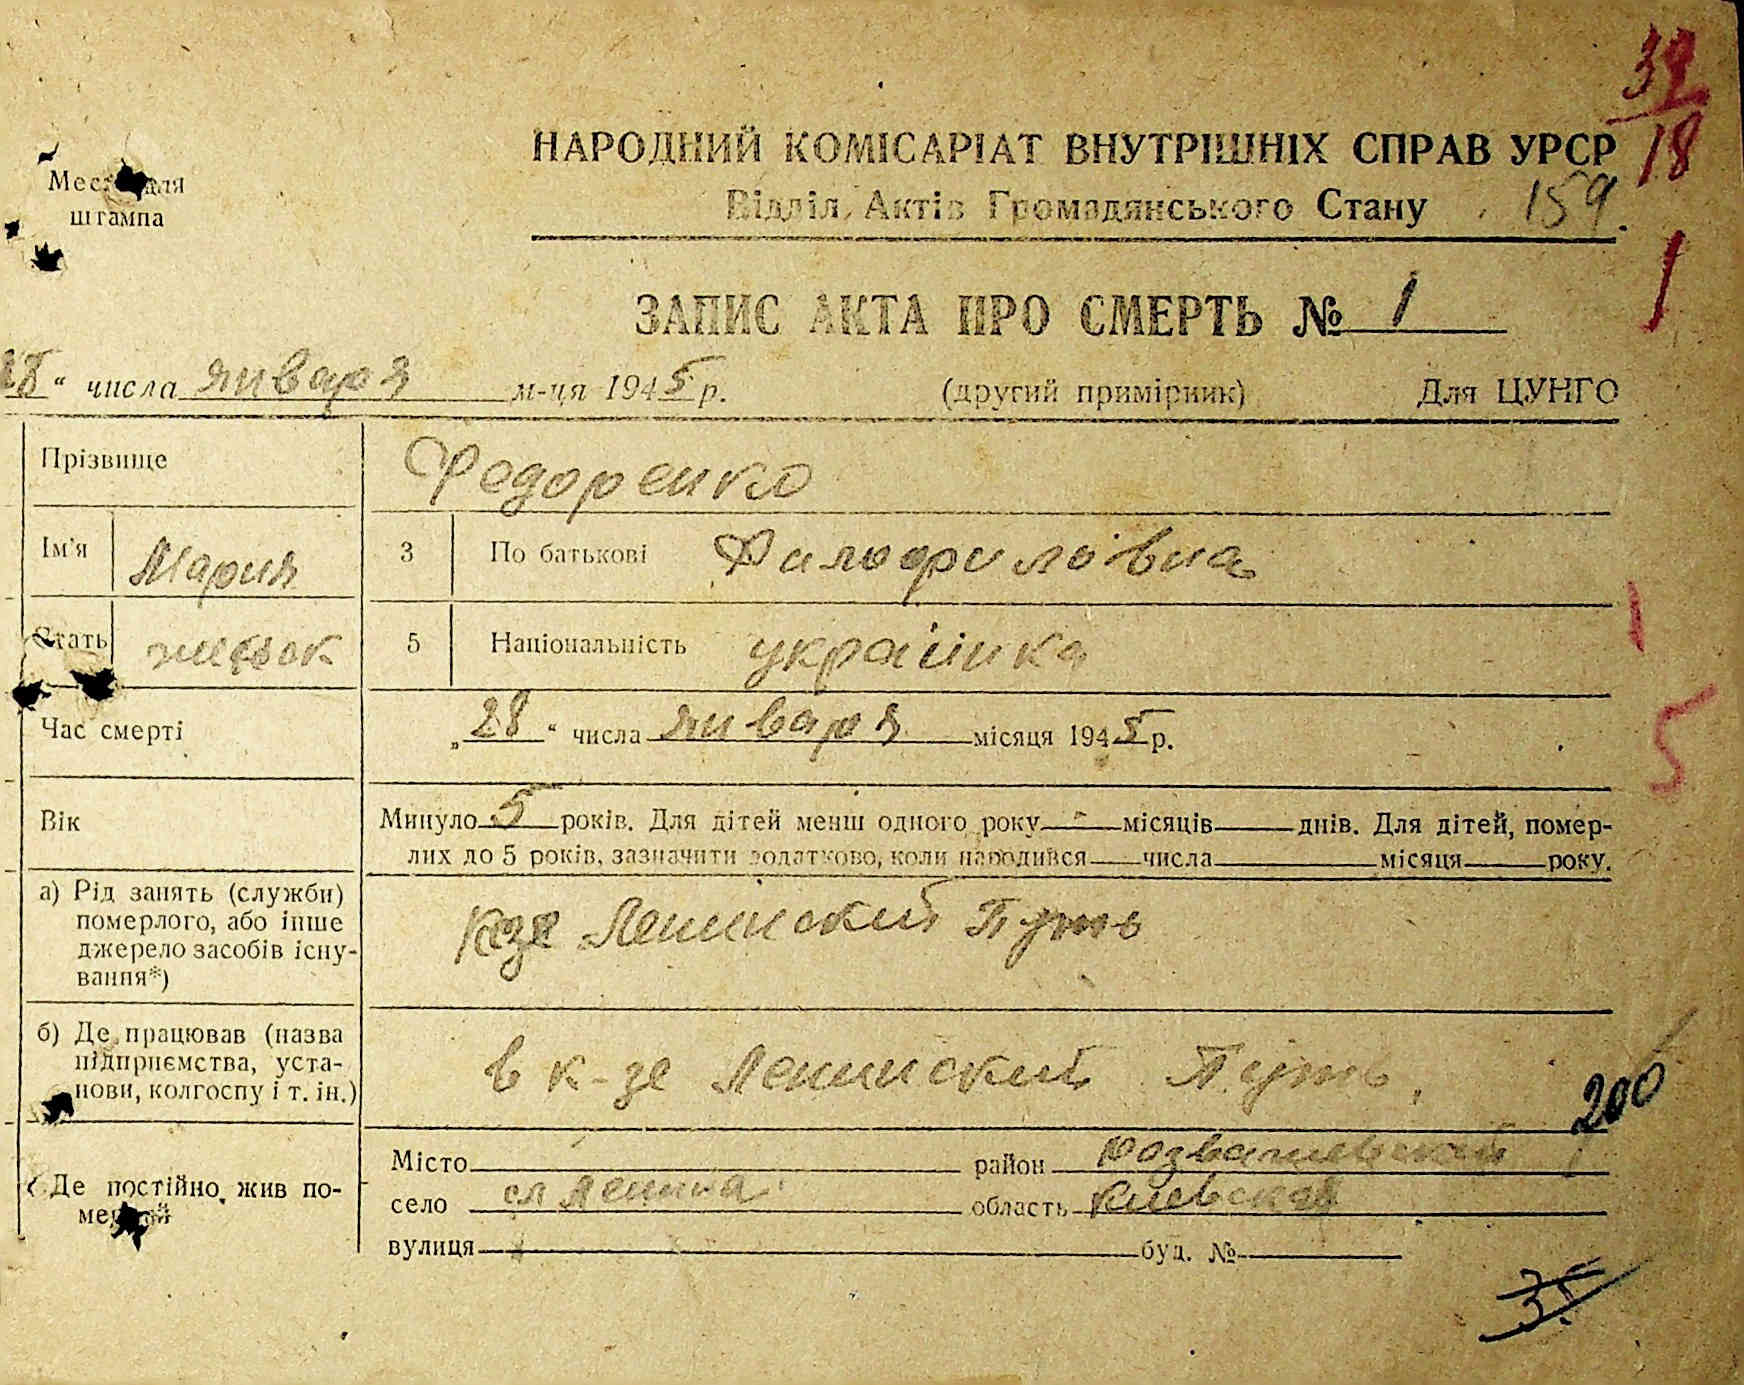 39
18
НАРОДНИЙ КОМІСАРІАТ ВНУТРІШНІХ СПРАВ УРСР
Місце для
штампа
Відділ Актів Громадянського Стану 159
1
ЗАПИС АКТА ПРО СМЕРТЬ № 1
28 " числа января м-ця 1945 р. (другий примірник) Для ЦУНГО
Прізвище Федоренко
Ім'я Мария 3 По батькові
Стать 5 Національність українка
1
Час смерті „28" числа января місяця 1945 р.
5
Вік Минуло 5 років. Для дітей менш одного року - місяців днів. Для дітей, помер-
лих до 5 років, зазначити додатково, коли народився числа місяця року.
а) Рід занять (служби)
померлого, або інше
джерело засобів існу-
вання*)
Ленинский Путь
б) Де працював (назва
підприємства, уста-
нови, колгоспу і т. ін.)
в к-зе Ленинский Путь.
200
Де постійно жив по-
мерлий
Місто район Розважевский
село сл Ленина область Киевская
вулиця буд. №
35